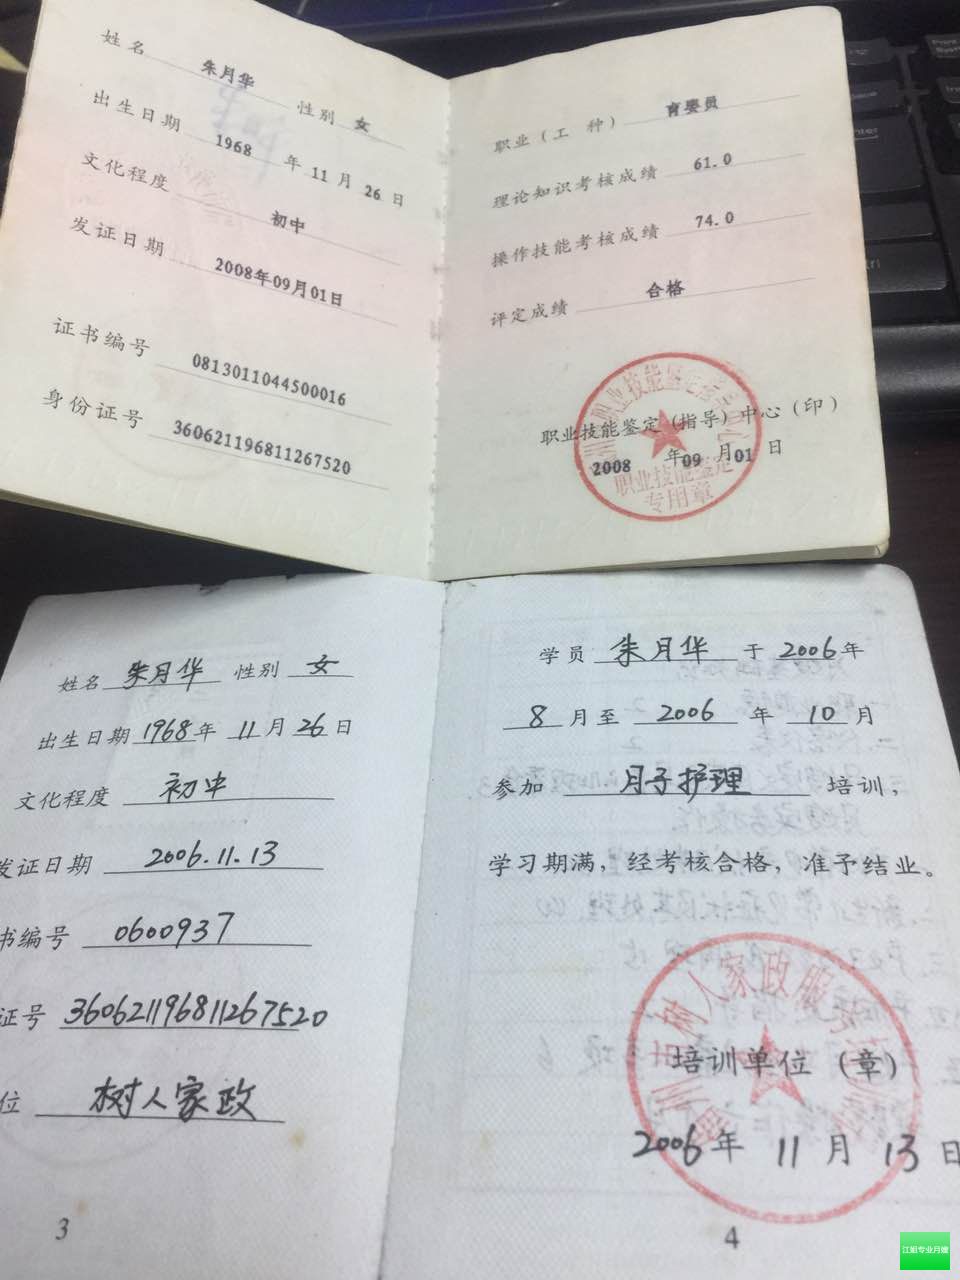 姓名 朱月华 性别 女
出生日期 1968 年 11 月 26 日
文化程度 初中
发证日期 2008年09月01日
证书编号 0813011044500016
身份证号 360621196811267520
职业（工 种） 育婴员
理论知识考核成绩 61.0
操作技能考核成绩 74.0
评定成绩 合格
职业技能鉴定（指导）中心（印）
2008 年 09 月 01 日
职业技能鉴定
专用章
姓名 朱月华 性别 女
出生日期 1968 年 11 月 26 日
文化程度 初中
发证日期 2006.11.13
书编号 0600937
证号 360621196811267520
位 树人家政
3
学员 朱月华 于 2006 年
8 月至 2006 年 10 月
参加 月子护理 培训，
学习期满，经考核合格，准予结业。
树人家政服
培训单位（章）
2006 年 11 月 13 日
4
江姐专业月嫂